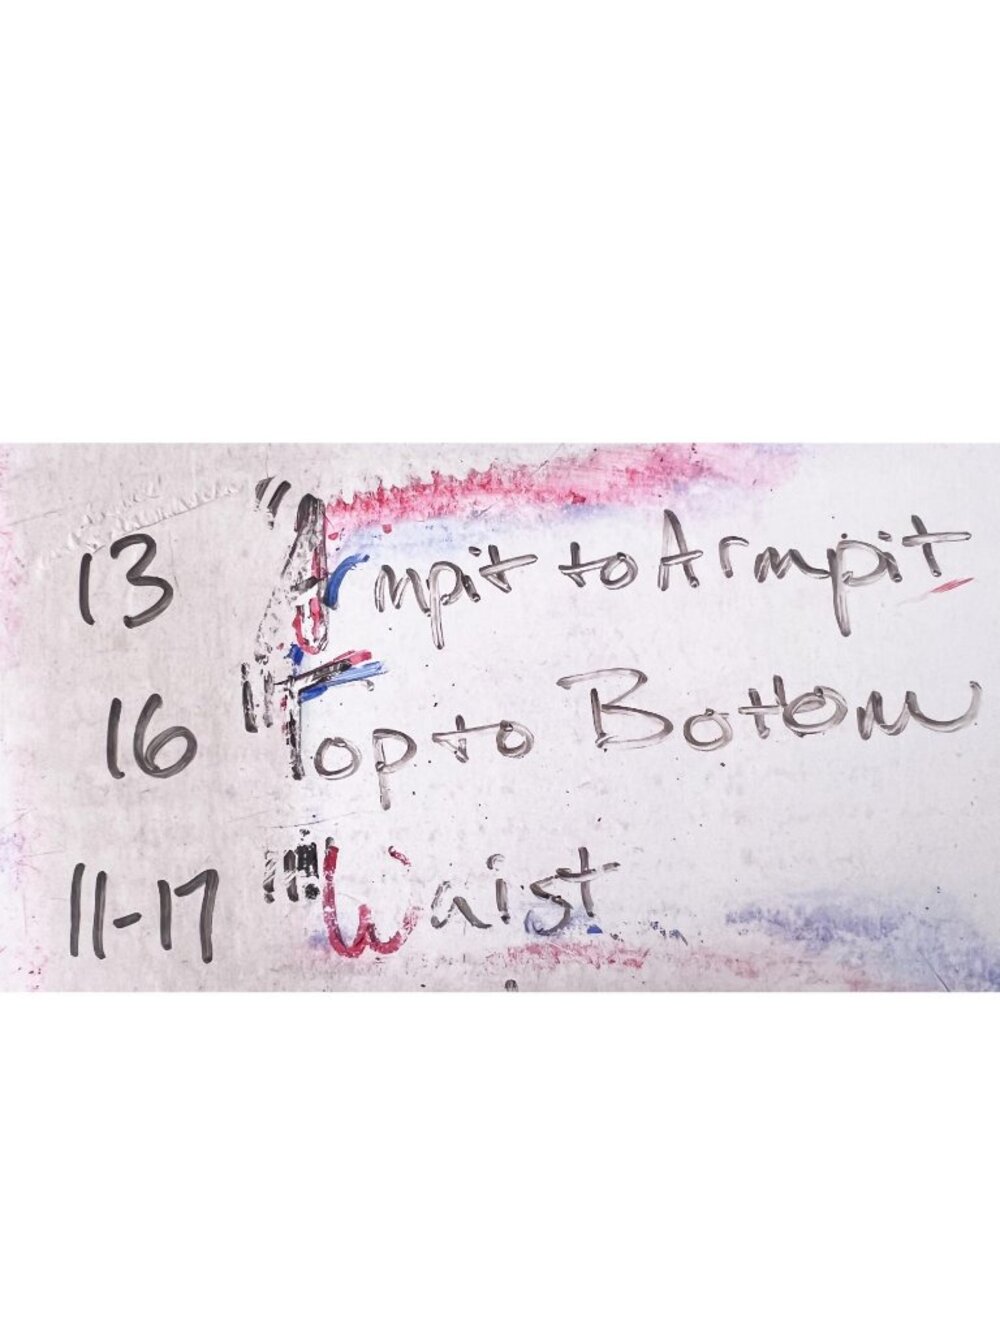 13" Armpit to Armpit
16" Top to Bottom
11-17" Waist